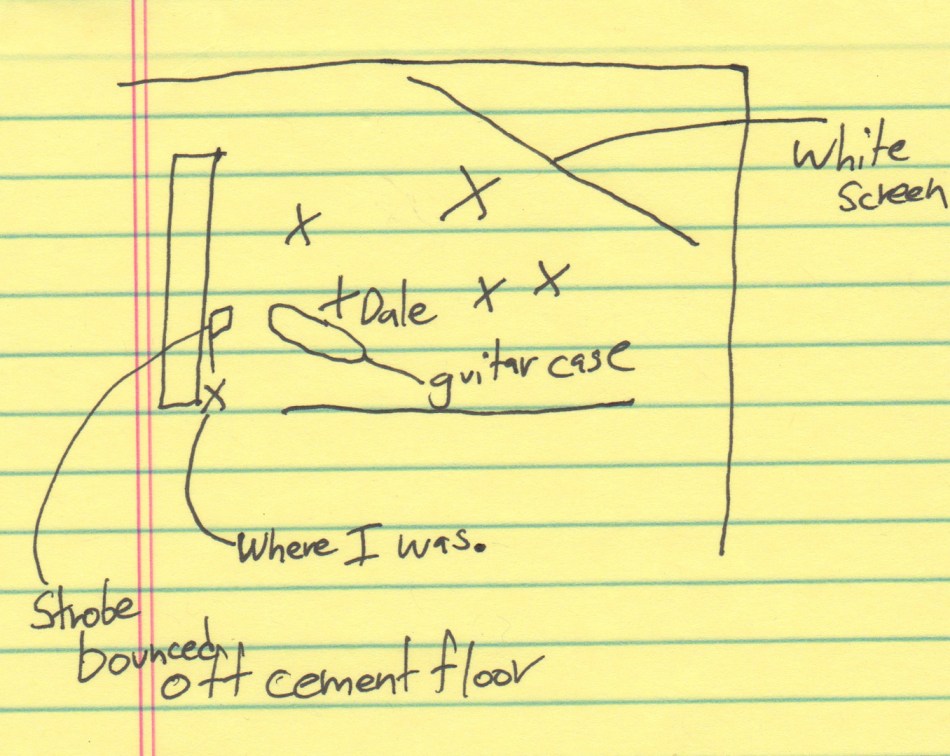 White
Screen
X
X
X Dale
X X
guitar case
X
Where I was.
Strobe
bounced
off cement floor